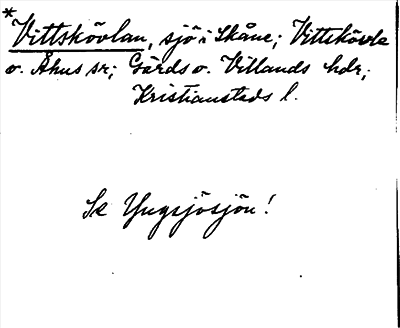 *Vittskövlan, sjö i Skåne; Vittskövle
o. Åhus sr; Gärds o. Villands hdr;
Kristianstads l.
Se Yngsjösjön!